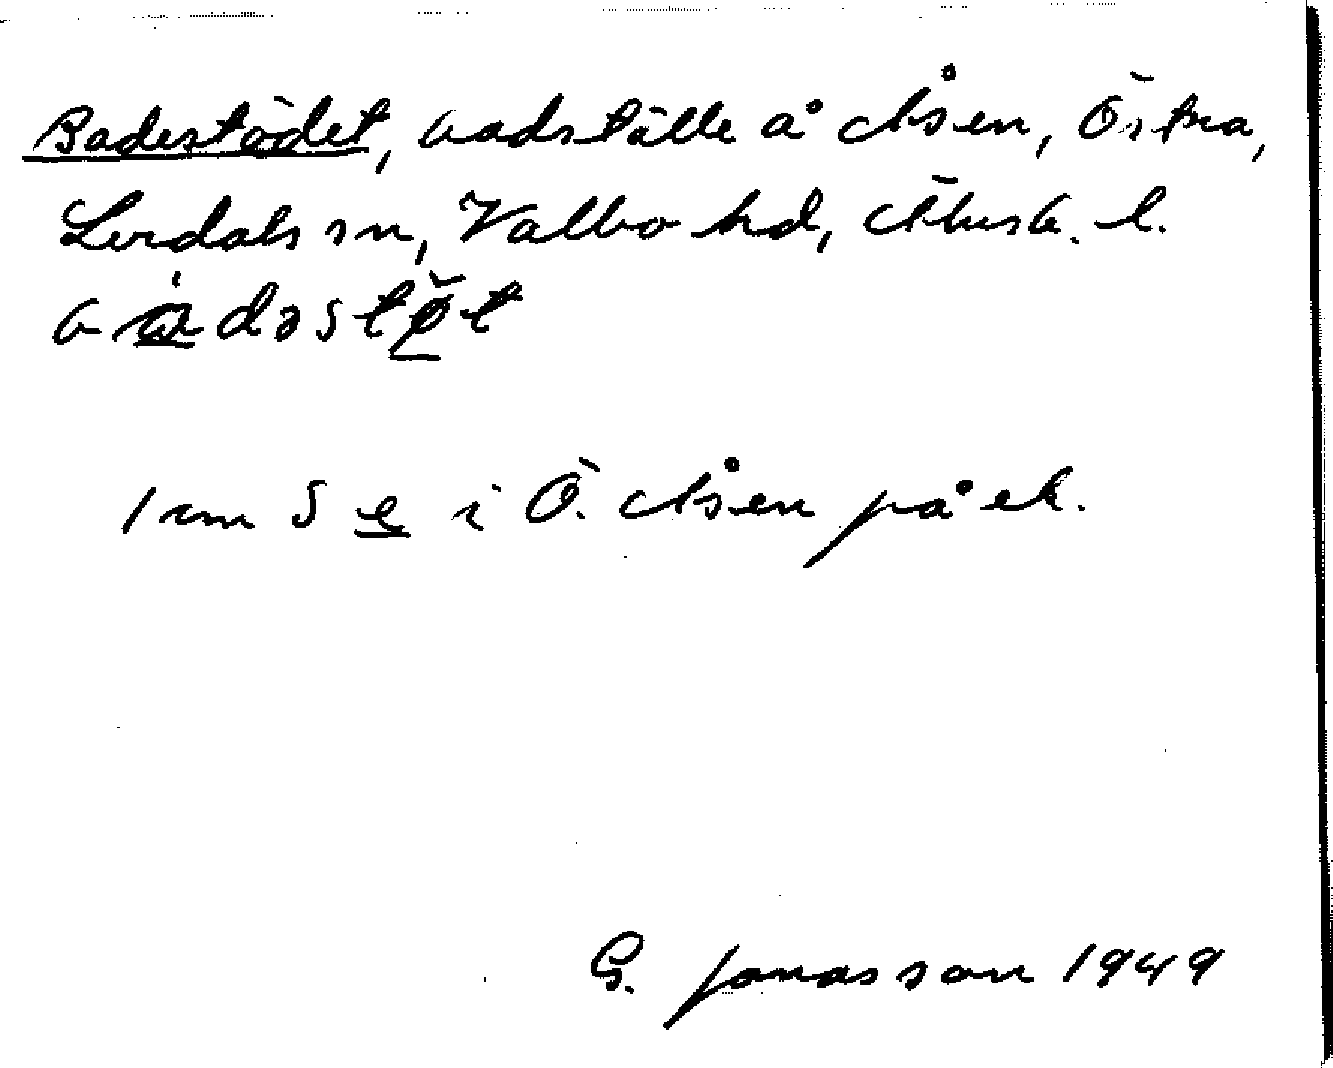 Badestödet, badställe å Åsen, Östra,
Lerdals sn, Valbo hd, Älvsb. l.
1 cm S e i Ö. Åsen på ek.
G. Jonasson 1949